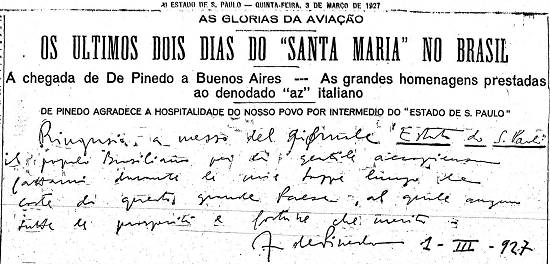 O ESTADO DE S. PAULO — QUINTA-FEIRA, 3 DE MARÇO DE 1927
AS GLORIAS DA AVIAÇÃO
OS ULTIMOS DOIS DIAS DO "SANTA MARIA" NO BRASIL
A chegada de De Pinedo a Buenos Aires --- As grandes homenagens prestadas
ao denodado "az" italiano
DE PINEDO AGRADECE A HOSPITALIDADE DO NOSSO POVO POR INTERMEDIO DO "ESTADO DE S. PAULO"
a mezzo del giornale "Estado de S. Paulo"
il popolo Brasiliano per
fattami durante le mie
coste di questo grande Paese, al quale auguro
tutte le prosperità e fortune che merita
F. de Pinedo 1 - III - 927